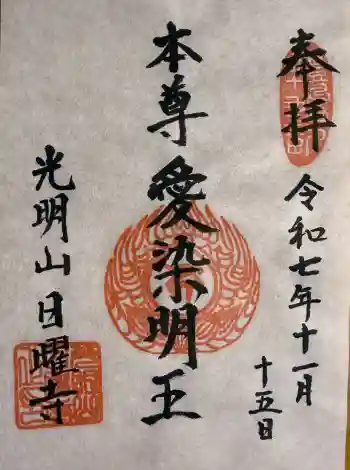 奉拝
令和七年十一月
十五日
本尊愛染明王
光明山日曜寺